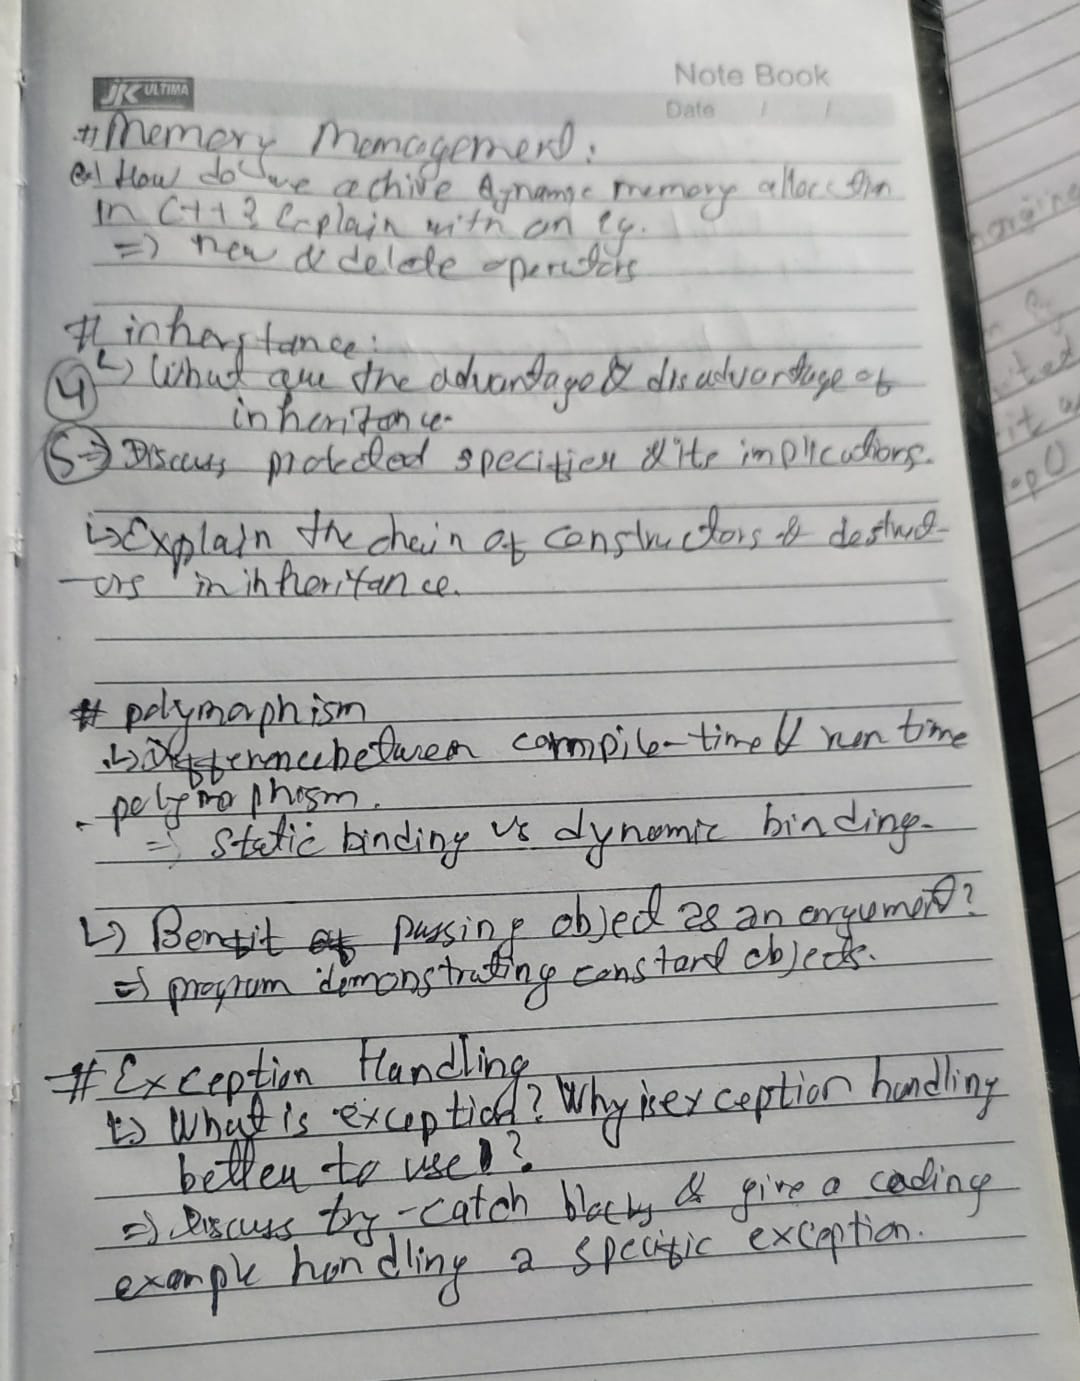 JK ULTIMA
Note Book
Date / /
# Memory Management:
Q) How do we achive dynamic memory allocation
in C++? Explain with an eg.
=) new & delete operators
# inheritance:
4 ↳ What are the advantage & disadvantage of
inheritance.
5 => Discuss protected specifier & its implications.
↳ Explain the chain of constructors & destruct-
-ors in inheritance.
# polymorphism
↳ Difference between compile-time & run time
polymorphism.
=) Static binding vs dynamic binding.
↳ Benefit of passing object as an argument?
=) program demonstrating constant objects.
# Exception Handling
↳ What is exception? Why is exception handling
better to use?
=) Discuss try-catch blocks & give a coding
example handling a specific exception.